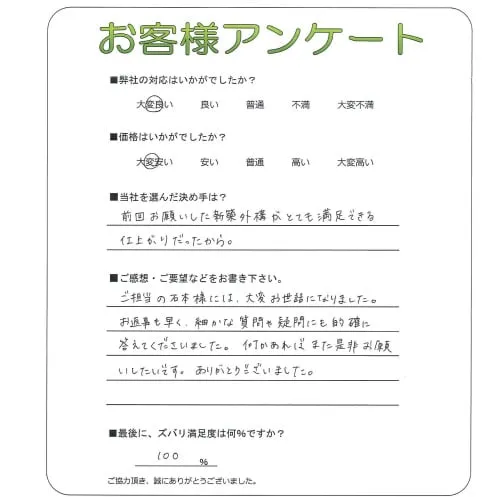 お客様アンケート
■弊社の対応はいかがでしたか？
大変良い 良い 普通 不満 大変不満
■価格はいかがでしたか？
大変安い 安い 普通 高い 大変高い
■当社を選んだ決め手は？
前回お願いした新築外構がとても満足できる
仕上がりだったから。
■ご感想・ご要望などをお書き下さい。
ご担当の石本様には、大変お世話になりました。
お返事も早く、細かな質問や疑問にも的確に
答えてくださいました。何かあればまた是非お願
いしたいです。ありがとうございました。
■最後に、ズバリ満足度は何%ですか？
100 %
ご協力頂き、誠にありがとうございました。